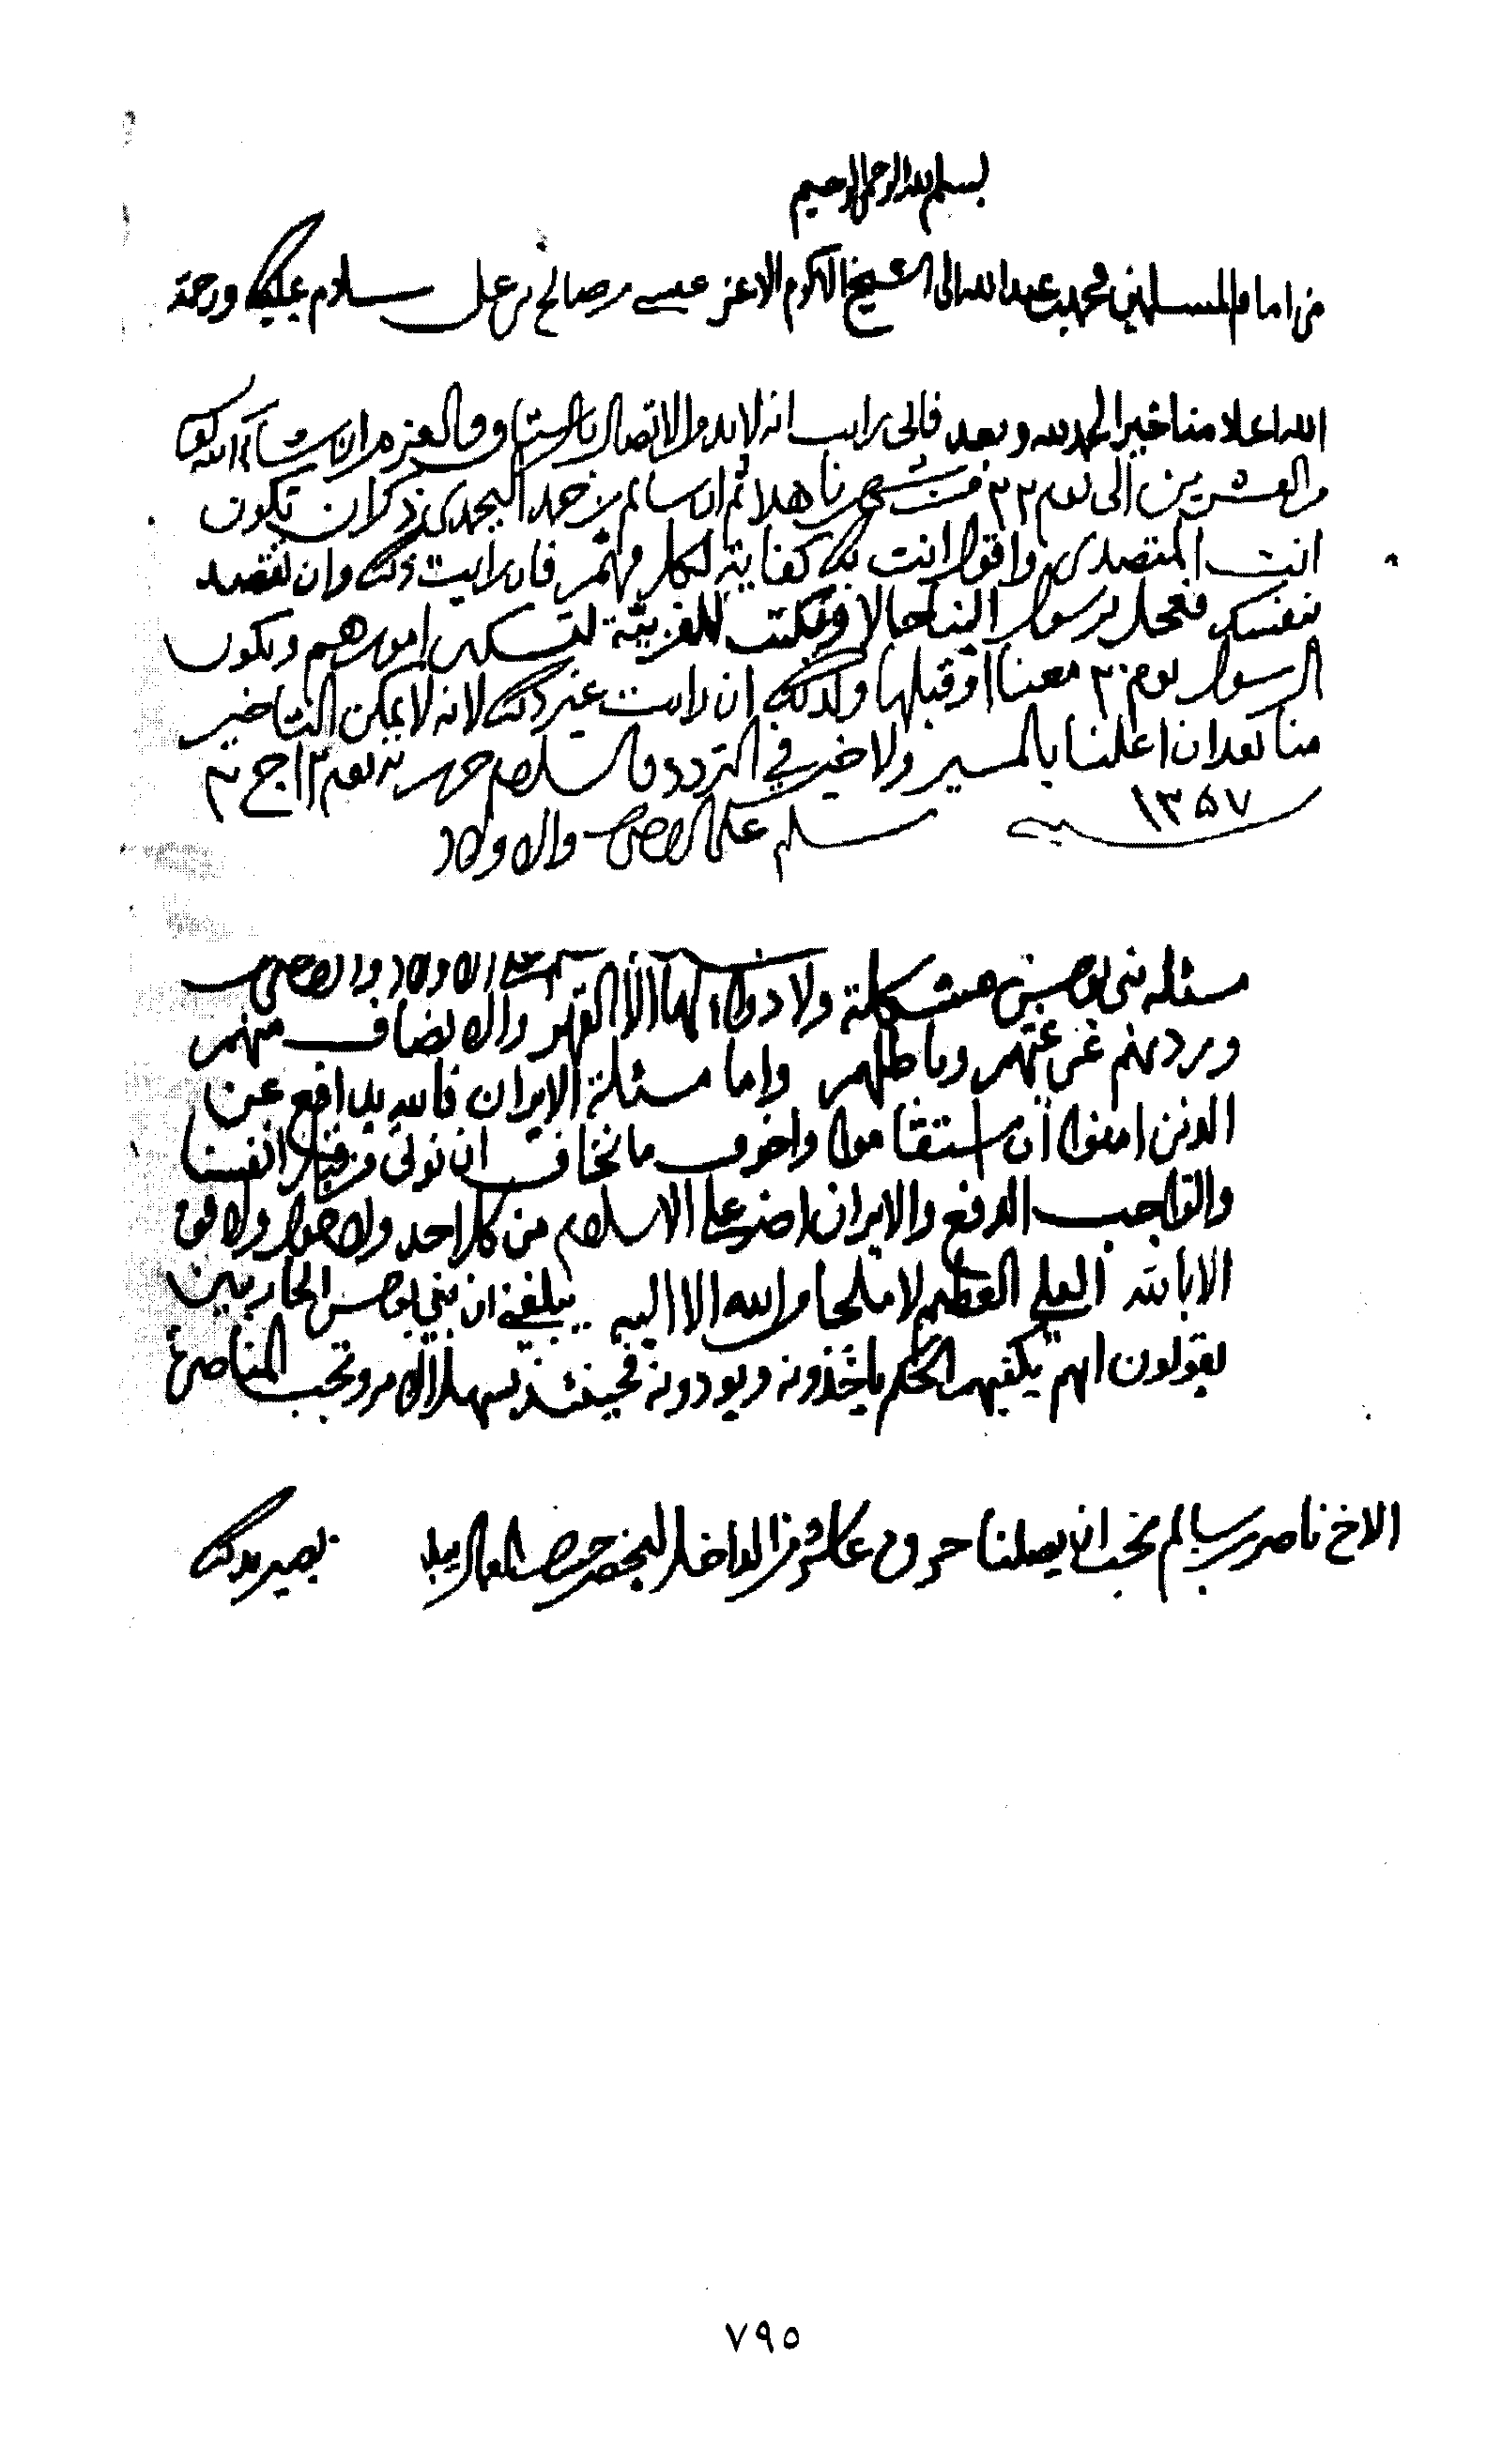 بسم الله الرحمن الرحيم
من امام المسلمين محمد بن عبدالله الى الشيخ الاكرم الاعز عيسى بن صالح بن علي سلام عليك ورحمة
الله اعلامنا خير الحمد لله وبعد فاني رايت انه لا بد من الاتصال بالرستاق والعزم ان شاء الله يكون
من العشرين الى يوم ٢٢ من شهرنا هذا ثم ان سالم بن حمد البحمدي ذكر ان تكون
انت المتصدي واقول انت بك كفاية لكل مهم فان رايت ذلك وان تقصد
بنفسك فعجل برسول الينا حالا وتكتب للغربية لتسكن امورهم ويكون
الرسول يوم ٢٠ معنا او قبلها وكذلك ان رايت غير ذلك لانه لا يمكن التاخير
منا بعد ان اعلنا بالمسير ولا خير في التردد والسلام حرر يوم ١٢ ج
سنة ١٣٥٧
سلم على والاولاد
على الاولاد
مسئلة بني بو حسن مشكلة ولا دواء لها الا القهر والانصاف منهم
وردهم عن غيهم وباطلهم واما مسئلة الايران فالله يدافع عن
الذين امنوا ان استقاموا واخوف ما نخاف ان نوتى من قبل انفسنا
والواجب الدفع والايران اضر على الاسلام من كل احد ولا حول ولا قوة
الا بالله العلي العظيم لا ملجا من الله الا اليه يبلغني ان بني بو حسن
يقولون انهم يكفيهم الحكم ياخذونه ويودونه فحينئذ يسهل الامر وتجب المناصرة
الاخ ناصر بن سالم نحب ان يصلنا هو ومن